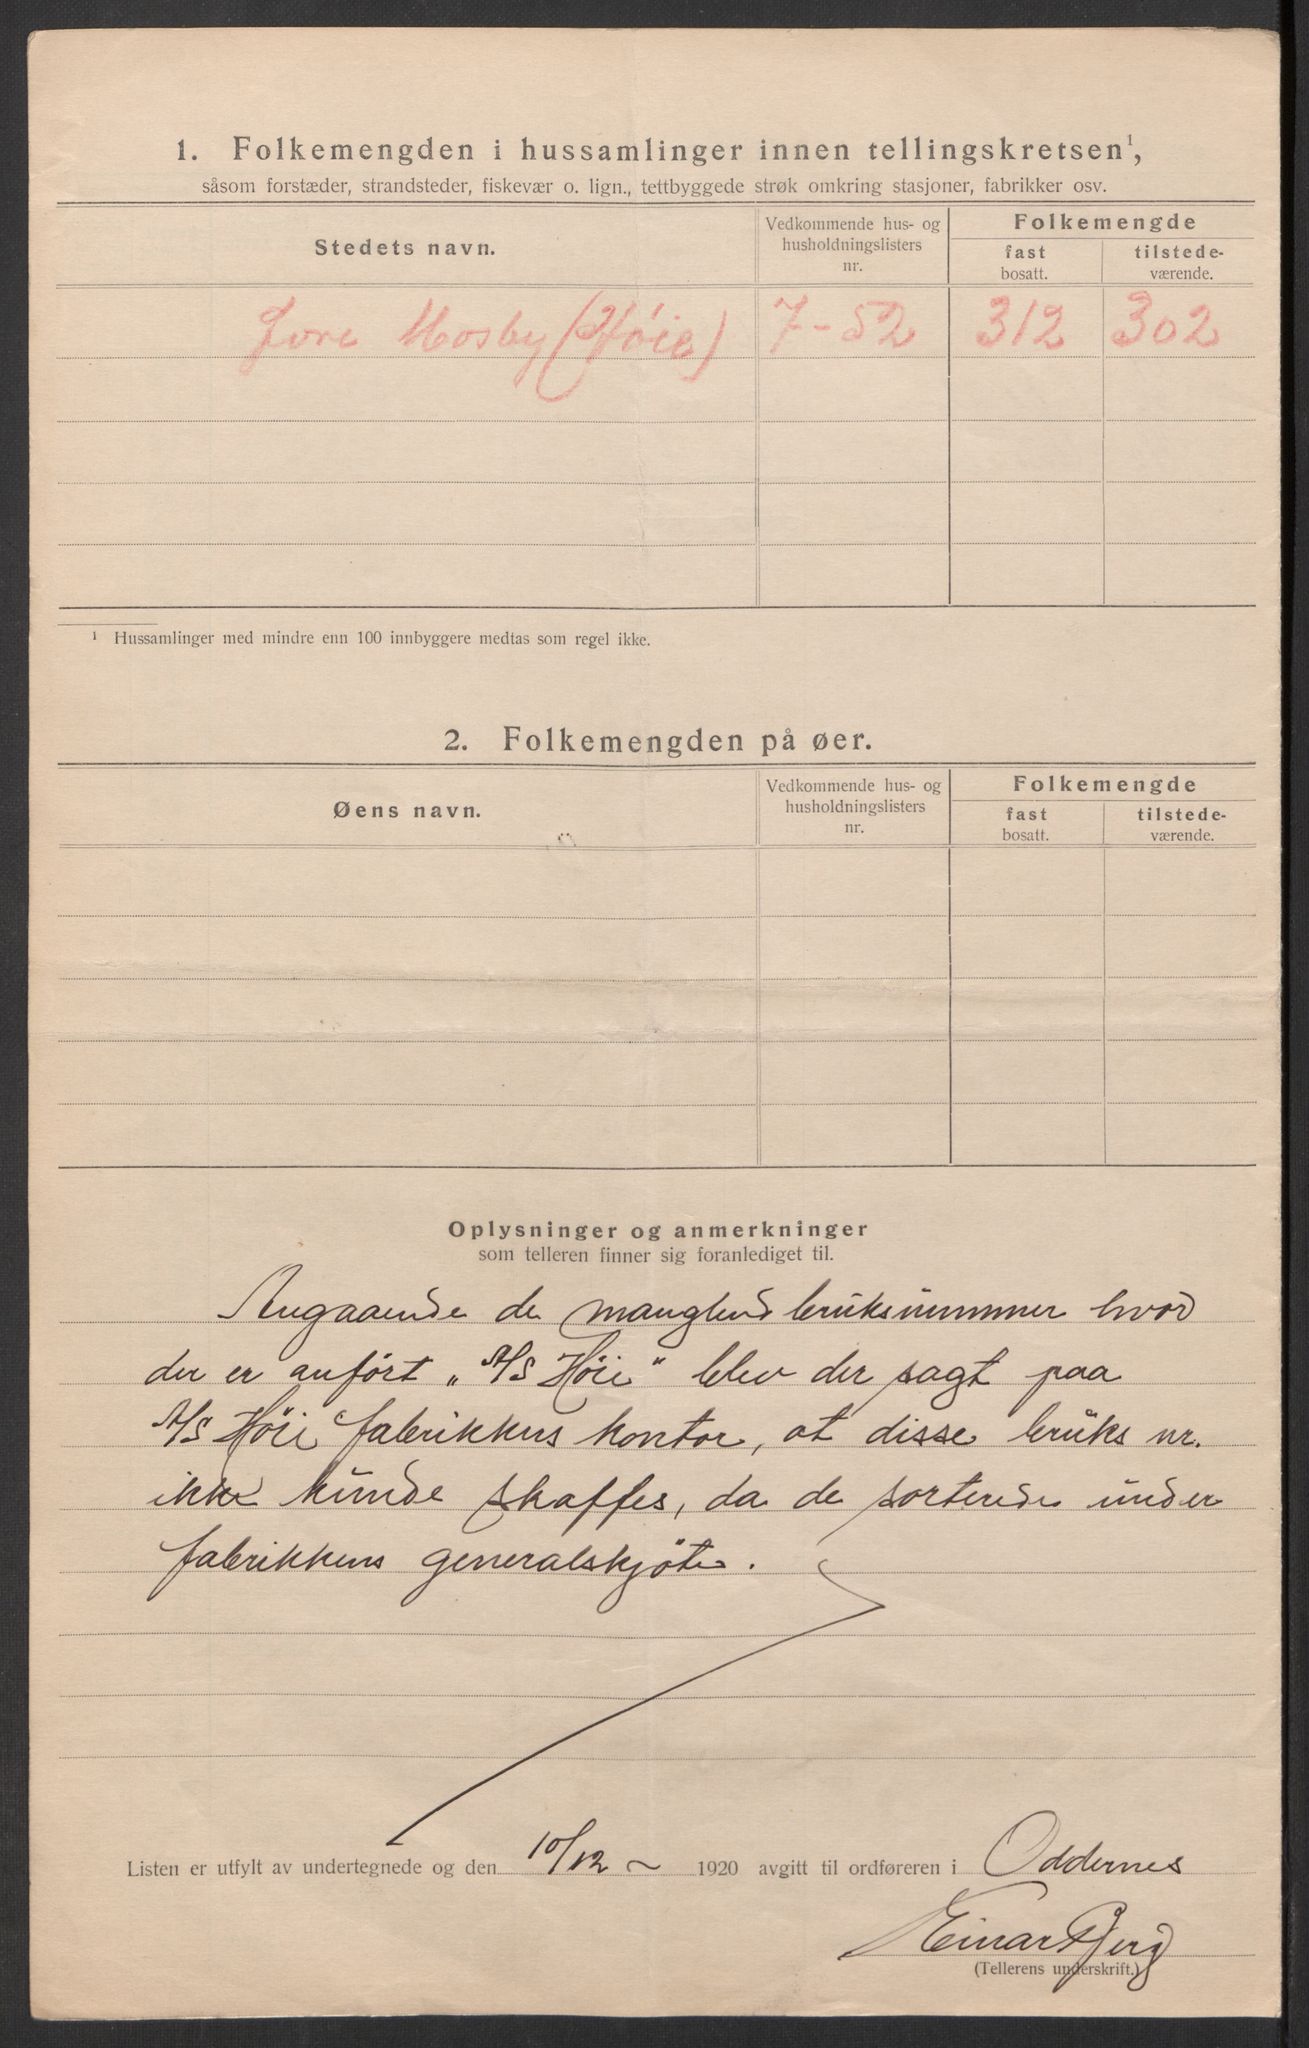 1. Folkemengden i hussamlinger innen tellingskretsen¹,
såsom forstæder, strandsteder, fiskevær o. lign., tettbyggede strøk omkring stasjoner, fabrikker osv.
Stedets navn.
Vedkommende hus- og husholdningslisters nr.
Folkemengde
fast bosatt.
tilstede-værende.
Øvre Mosby (Høie) 7-52 312 302
¹ Hussamlinger med mindre enn 100 innbyggere medtas som regel ikke.
2. Folkemengden på øer.
Øens navn.
Vedkommende hus- og husholdningslisters nr.
Folkemengde
fast bosatt.
tilstede-værende.
Oplysninger og anmerkninger
som telleren finner sig foranlediget til.
Angaaende de manglend bruksnummer hvor
der er anført „A/S Höie" blev der sagt paa
A/S Höie fabrikkers kontor, at disse bruks nr.
ikke kunde skaffes, da de sorterede under
fabrikkens generalskjöte.
Listen er utfylt av undertegnede og den 10/12 ~ 1920 avgitt til ordføreren i Oddernes
Einar Berg
(Tellerens underskrift.)